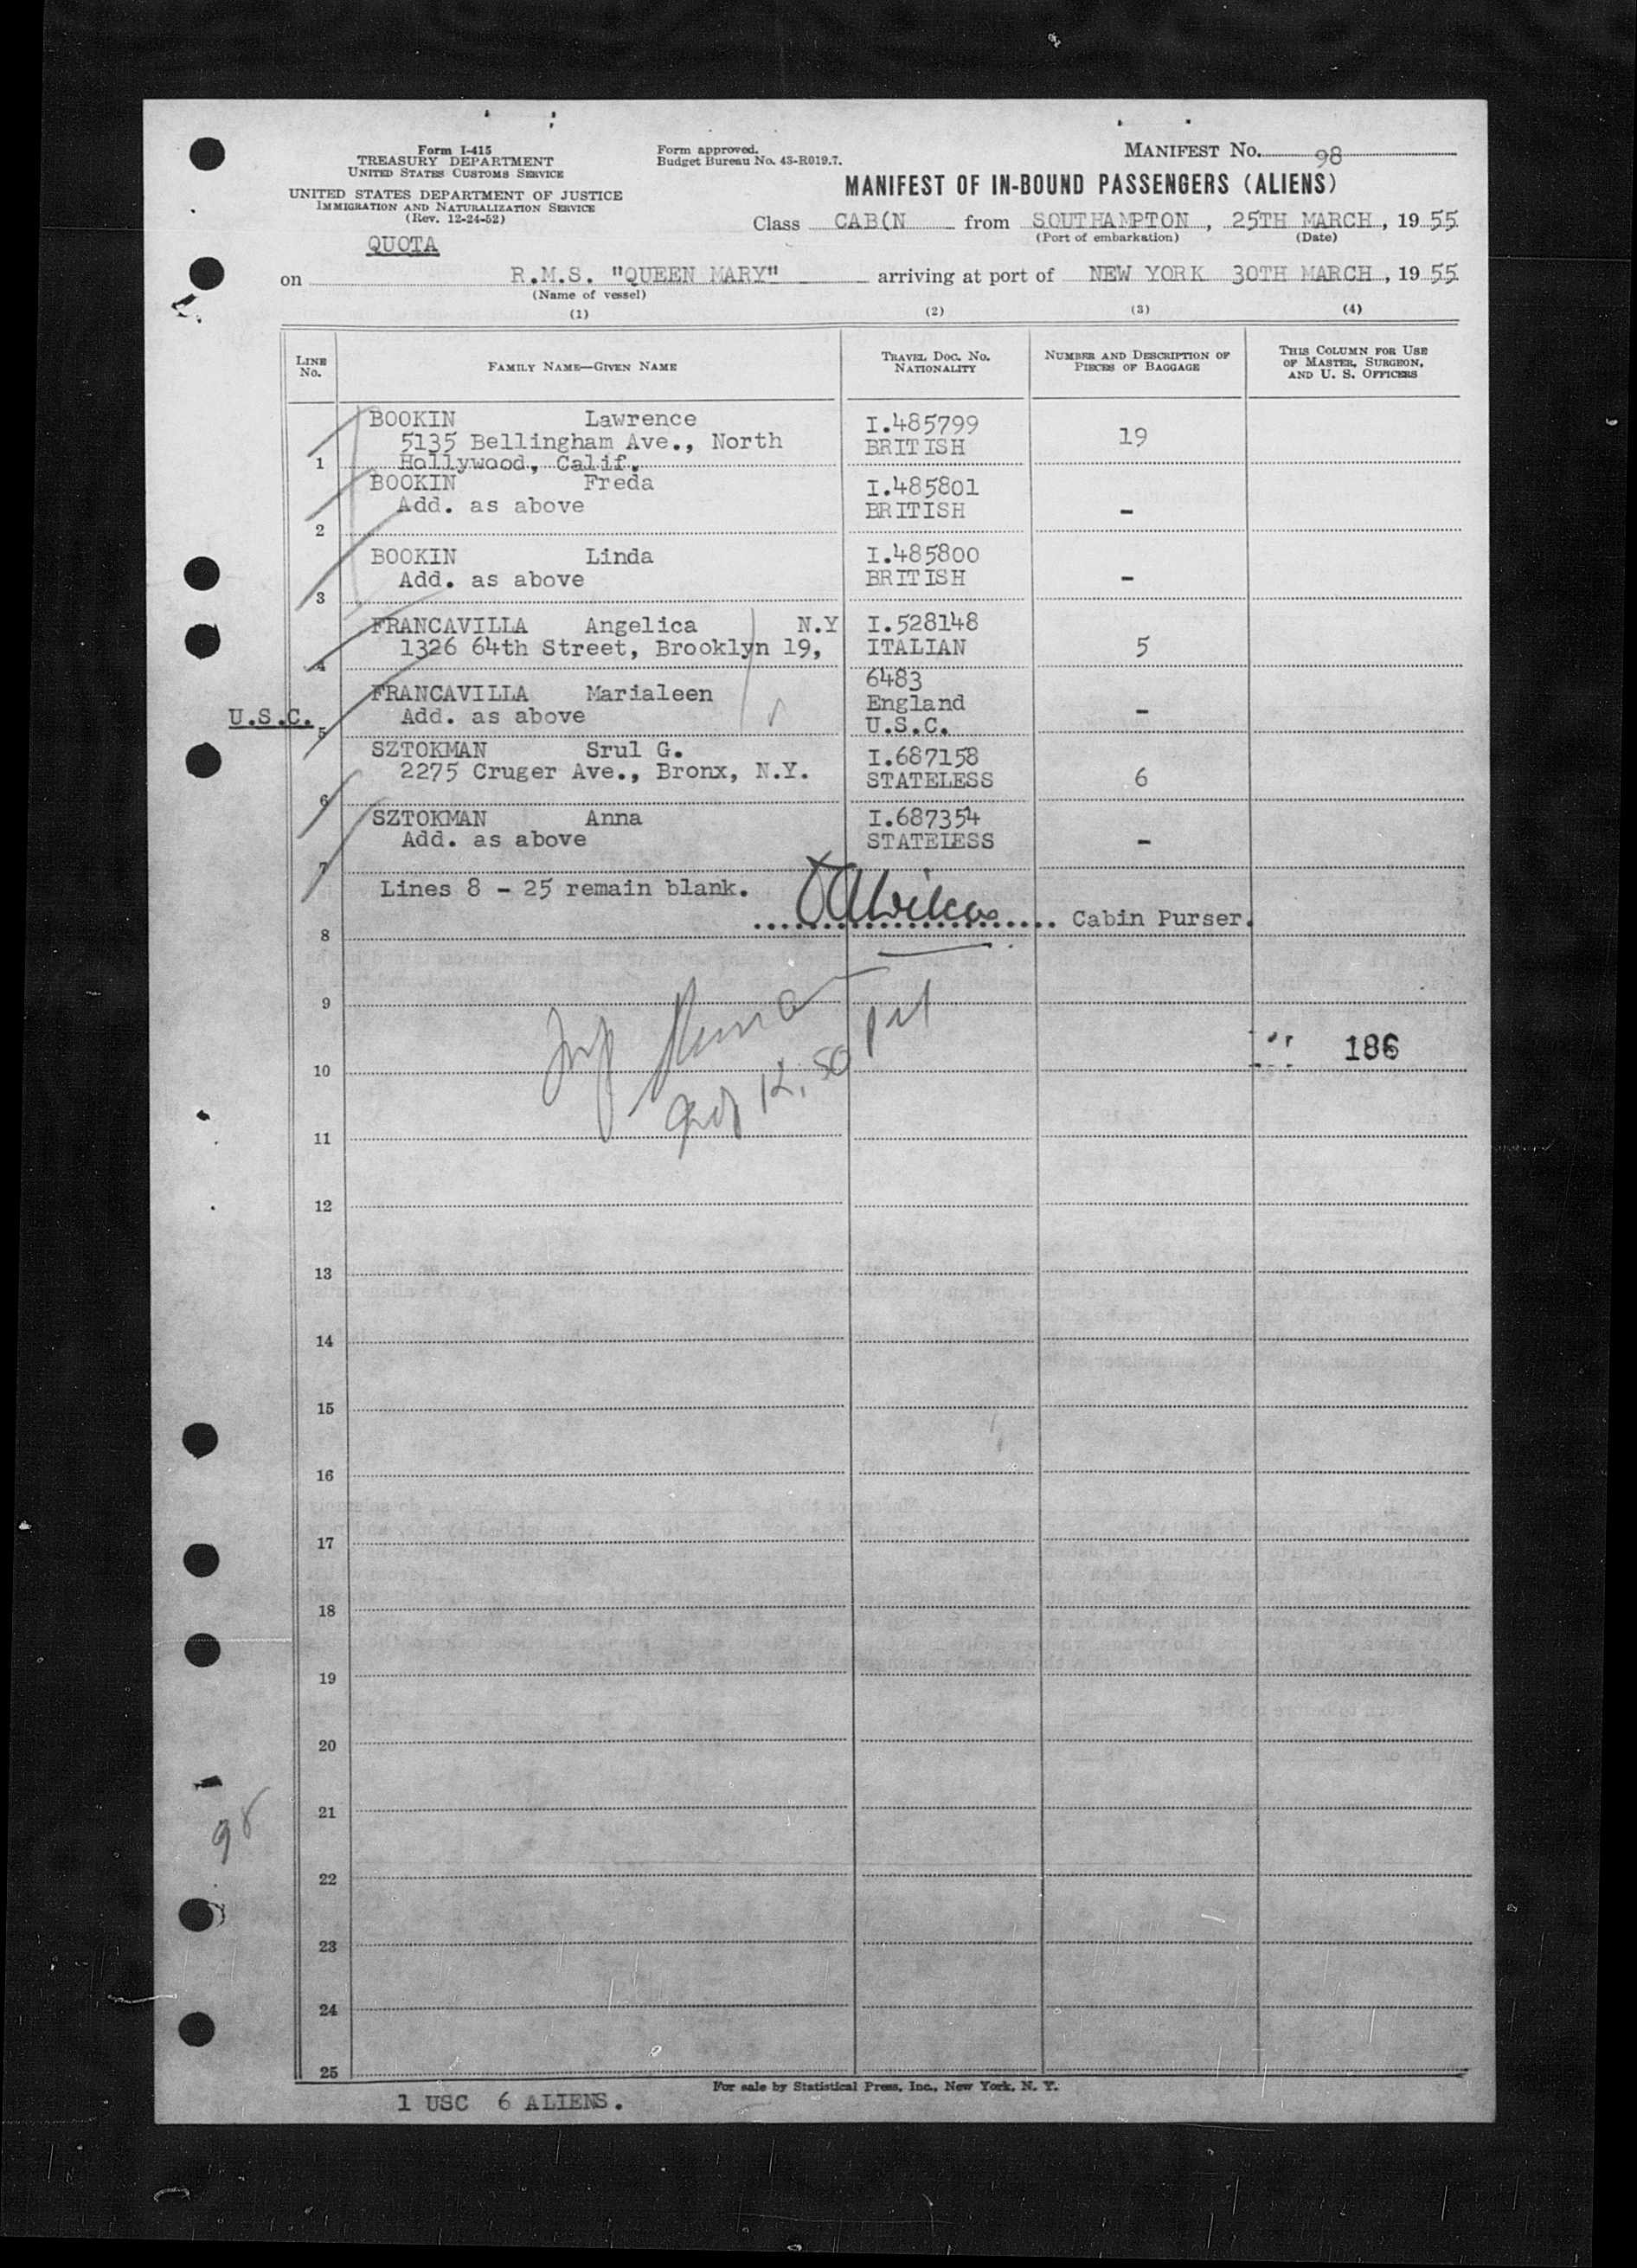 Form I-415
TREASURY DEPARTMENT
UNITED STATES CUSTOMS SERVICE
UNITED STATES DEPARTMENT OF JUSTICE
IMMIGRATION AND NATURALIZATION SERVICE
(Rev. 12-24-52)
QUOTA
Form approved.
Budget Bureau No. 43-R019.7.
MANIFEST NO. 98
MANIFEST OF IN-BOUND PASSENGERS (ALIENS)
Class CAB(N from SOUTHAMPTON, 25TH MARCH, 1955
(Port of embarkation) (Date)
on R.M.S. "QUEEN MARY" arriving at port of NEW YORK 30TH MARCH, 1955
(Name of vessel)
(1) (2) (3) (4)
LINE NO.
FAMILY NAME—GIVEN NAME
TRAVEL DOC. NO. NATIONALITY
NUMBER AND DESCRIPTION OF PIECES OF BAGGAGE
THIS COLUMN FOR USE OF MASTER, SURGEON, AND U. S. OFFICERS
BOOKIN Lawrence I.485799
5135 Bellingham Ave., North BRITISH 19
1 Hollywood, Calif.
BOOKIN Freda I.485801
Add. as above BRITISH -
2
BOOKIN Linda I.485800
Add. as above BRITISH -
3
FRANCAVILLA Angelica N.Y I.528148
1326 64th Street, Brooklyn 19, ITALIAN 5
4
6483
FRANCAVILLA Marialeen England
U.S.C. Add. as above U.S.C. -
5
SZTOKMAN Srul G. I.687158
2275 Cruger Ave., Bronx, N.Y. STATELESS 6
6
SZTOKMAN Anna I.687354
Add. as above STATELESS -
7
Lines 8 - 25 remain blank.
Cabin Purser.
8
9
186
10
12.50
11
12
13
14
15
16
17
18
19
20
21
98
22
23
24
25
For sale by Statistical Press, Inc., New York, N. Y.
1 USC 6 ALIENS.